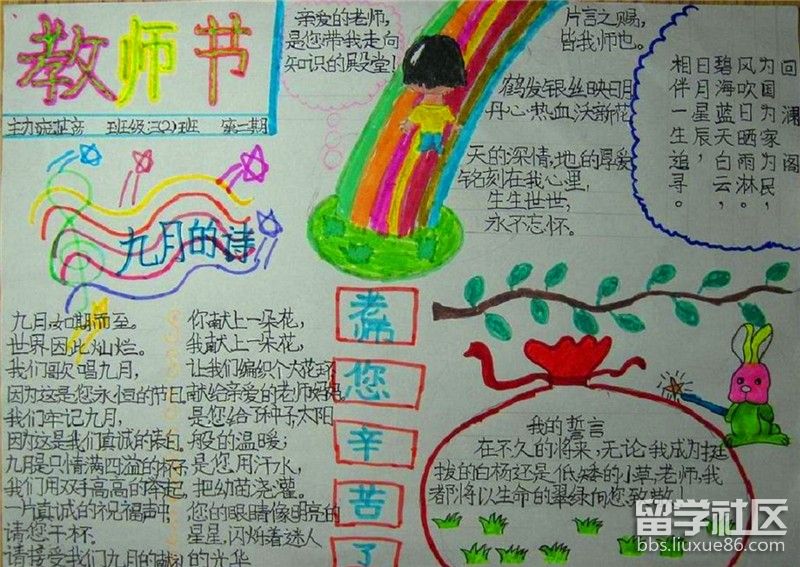 教师节
班级:三(2)班 第一期
亲爱的老师,
是您带我走向
知识的殿堂!
片言之赐,
皆我师也。
鹤发银丝映日月
丹心热血沃新花
天的深情,地的厚爱
铭刻在我心里,
生生世世,
永不忘怀。
回澜阁
为国为民,
风吹日晒雨淋。
碧海蓝天白云,
日月星辰,
相伴一生追寻。
九月的诗
九月如期而至。
世界因此灿烂。
我们歌唱九月,
因为这是您永恒的节日
我们牢记九月,
因为这是我们真诚的
九月是只情满四溢的杯
我们用双手高高的牵起
一片真诚的祝福声中
请您干杯.
请接受我们九月的
你献上一朵花,
我献上一朵花,
让我们编织个大花环
献给亲爱的老师妈妈
是您给了种子太阳
般的温暖;
是您用汗水,
把幼苗浇灌。
您的眼睛像明亮的
星星,闪烁着迷人
的光华
老师
您
辛
苦
了
我的誓言
在不久的将来,无论我成为挺
拔的白杨还是低矮的小草,老师,我
都将以生命的翠绿向您致敬!
留学社区
bbs.liuxue86.com